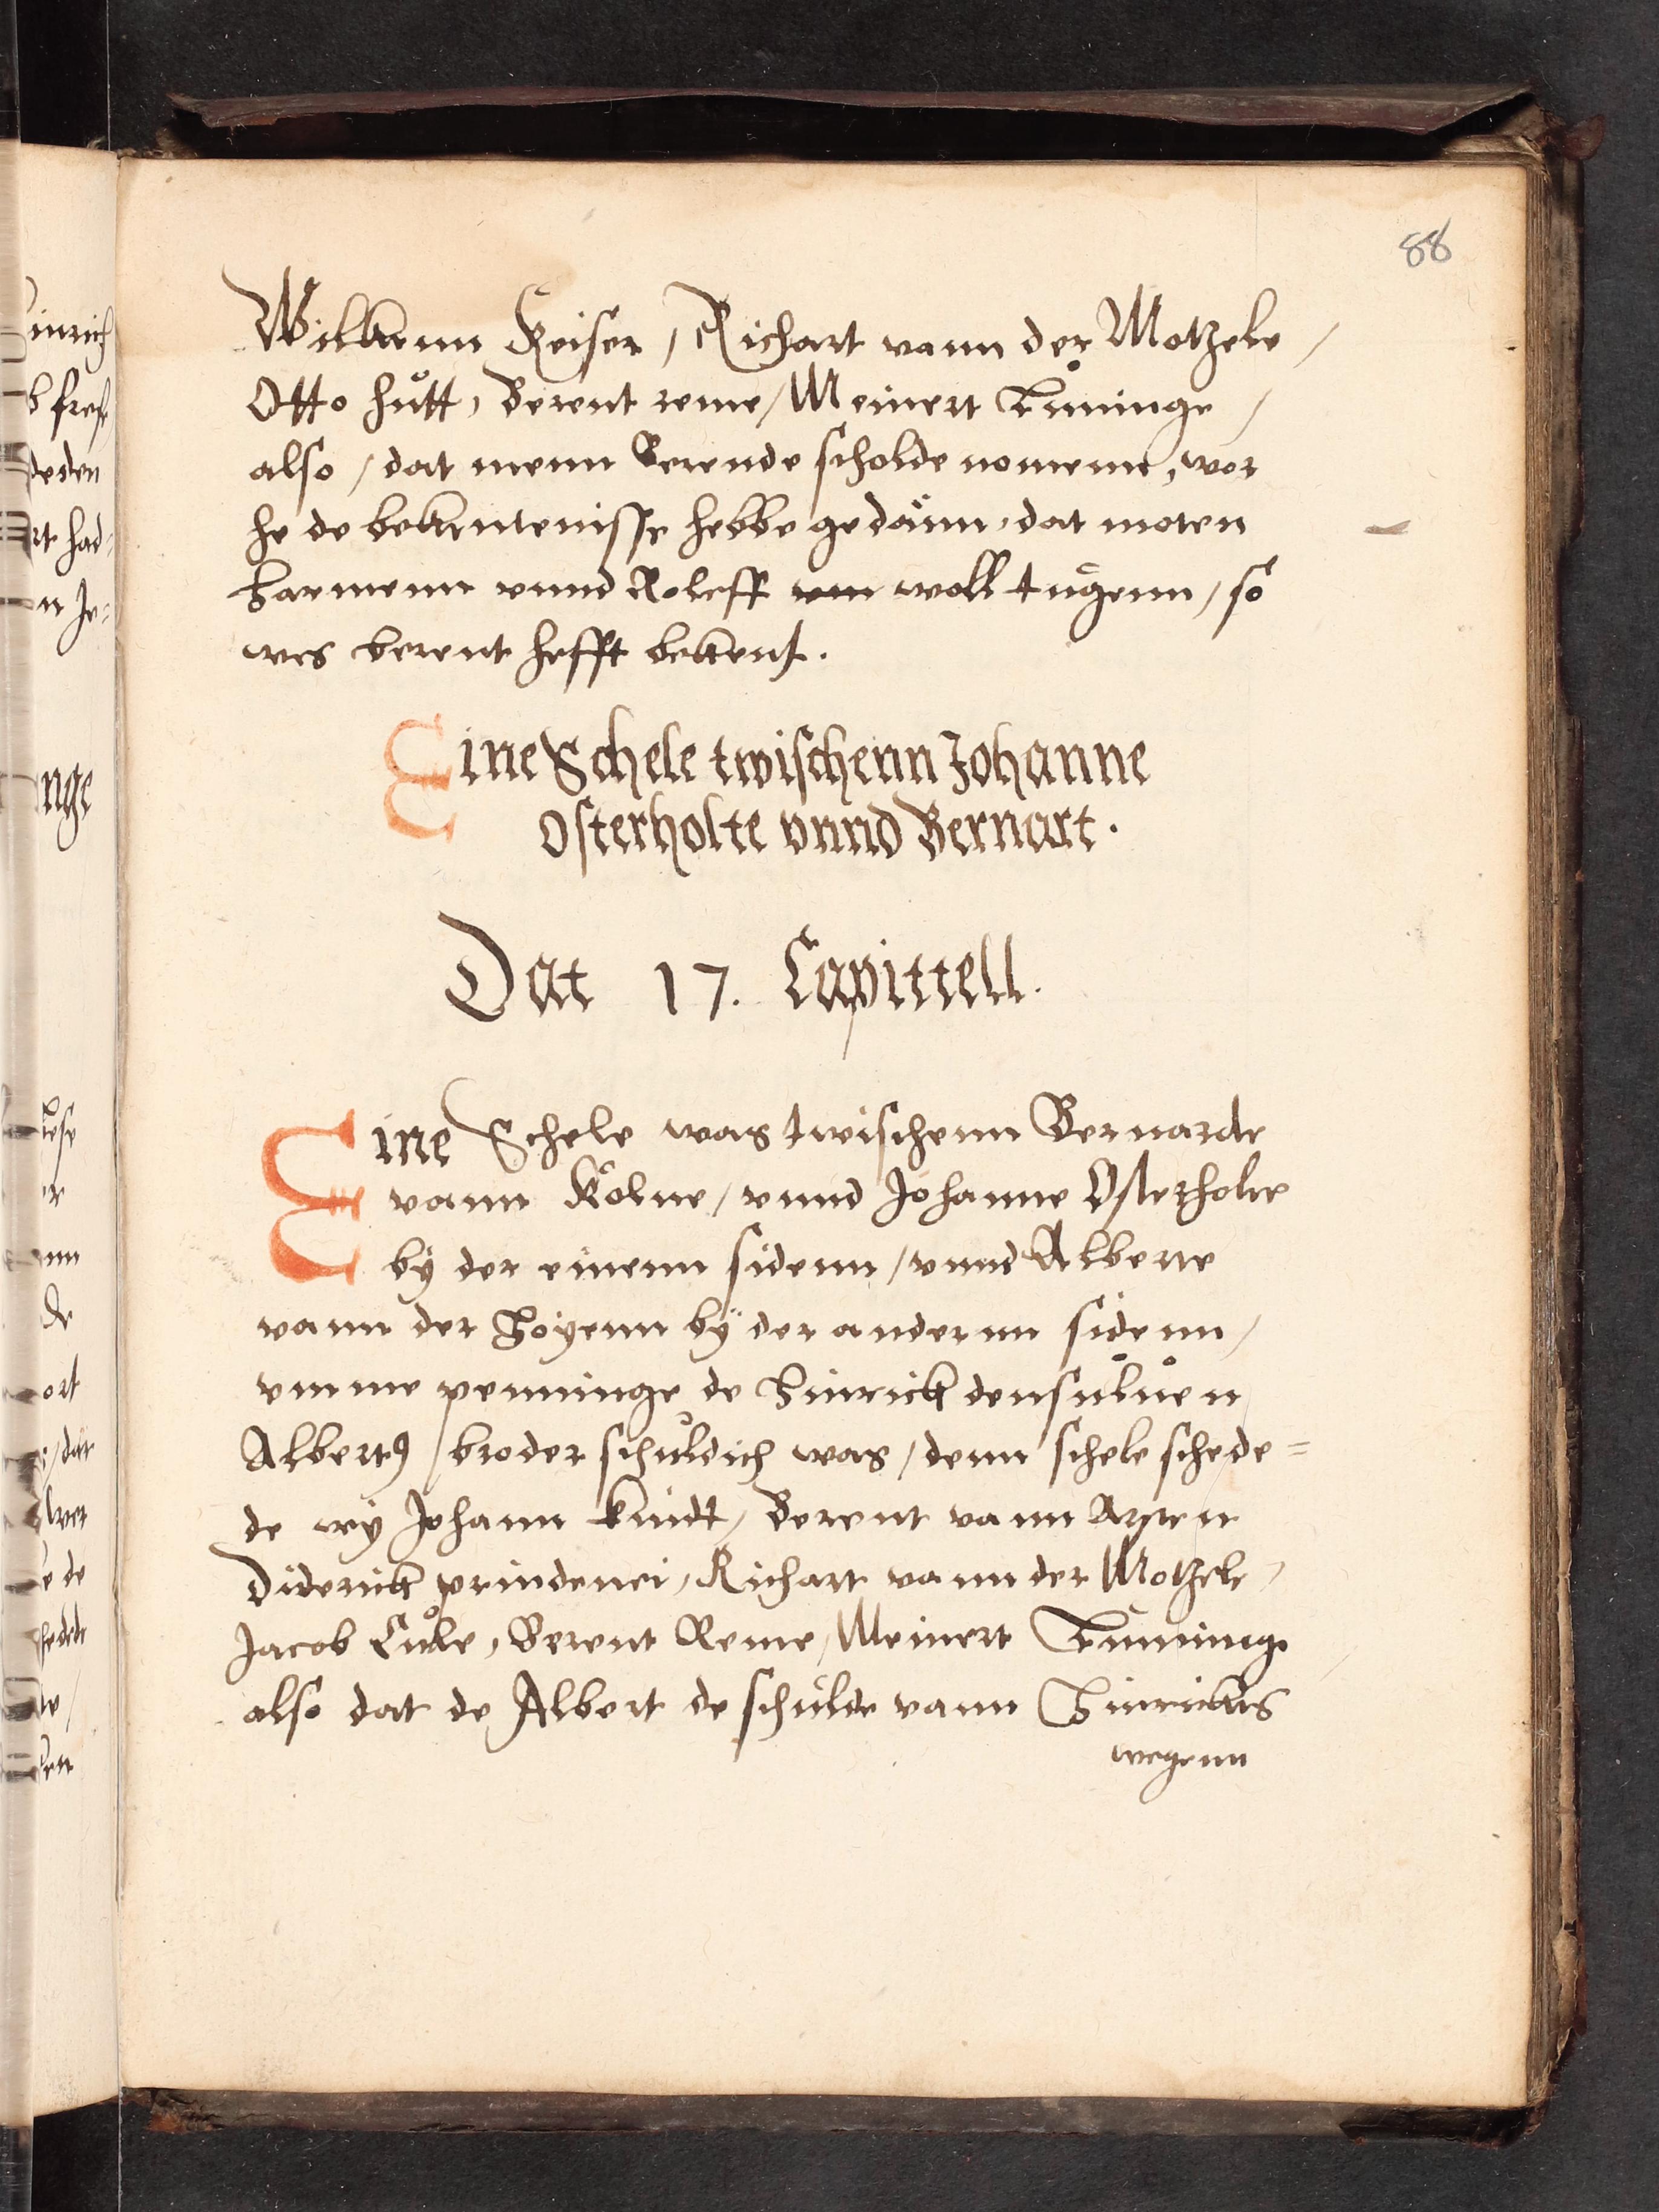 88
Wilkenn Keiser / Richart vann der Motzele /
Otto hůtt, Berent reme / Meinert Tůninge /
also / dat menn Berende scholde nomenn, wor
he de bekentenisse hebbe gedänn, dat moten
Harmenn vnnd Roleff woll tugenn / so
wes berent hefft bekent.
Eine Schele twischenn Johanne
Osterholte vnnd Bernart.
Dat 17. Capittell.
Eine Schele was twischenn Bernarde
vann Kolne / vnnd Johanne Osterholte
bÿ der einenn sidenn / vnnd Alberte
vann der Hoÿenn bÿ der andernn sidenn /
vmme penninge de Hinrick densůluen
Albertꝯ broder schůldich was / denn schele schede=
de wÿ Johann kindt / Berent vann
Diderick prindenei, Richart vann der Motzele,
Jacob Cůle, Berent Reme, Meinert Tůninge
also dat de Albert de schůlde vann Hinrickes
wegenn
inrich
deden
rt had=
n Je=
nge
ort
/ dat